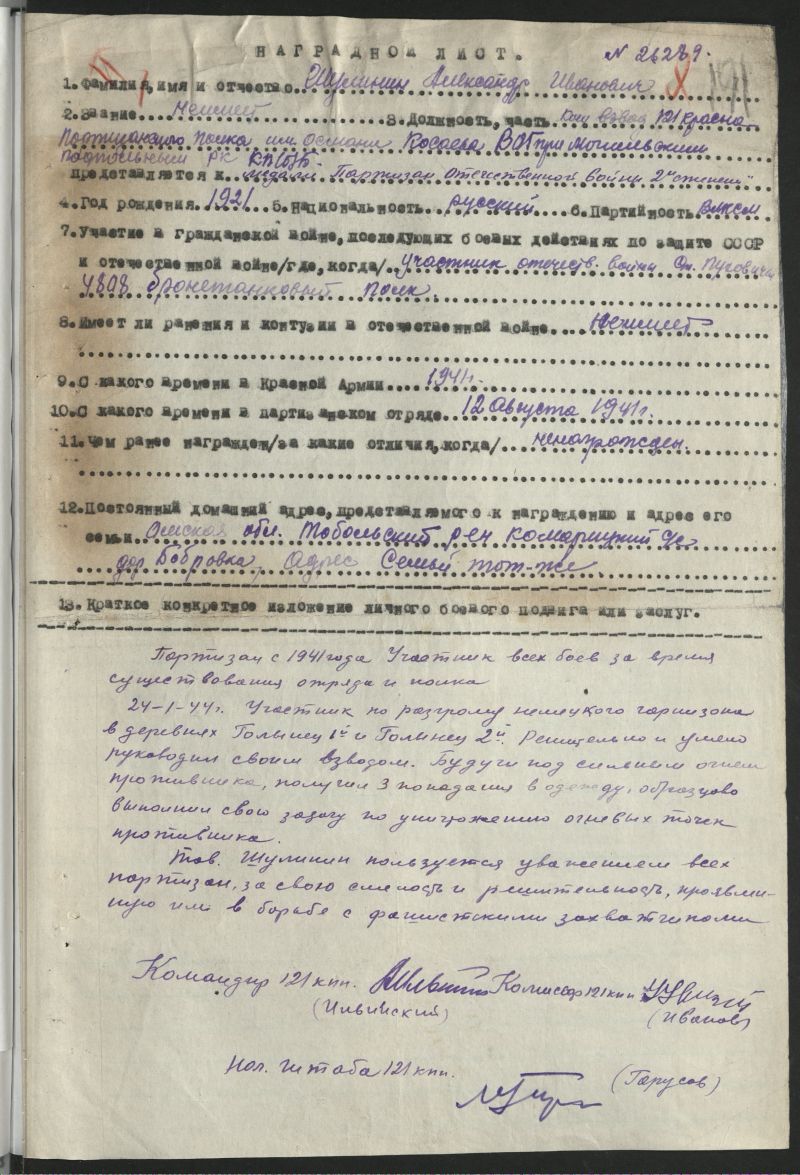 НАГРАДНОЙ ЛИСТ. N 26289.
1. Фамилия, имя и отчество Шулинин Александр Иванович
2. Звание неимеет 3. Должность, часть Ком взвод 121 красно
Партизанского полка им Османа Касаева ВОГ при Могилевском
подпольным РК КП(б)Б.
представляется к медали "Партизан отечественной войны 2й степени"
4. Год рождения 1921 5. Национальность русский 6. Партийность ВЛКСМ
7. Участие в гражданской войне, последующих боевых действиях по защите СССР
и отечественной войне/где, когда/ участник отечеств. войны
бронетанковый полк.
8. Имеет ли ранения и контузии в отечественной войне неимеет
9. С какого времени в Красной Армии 1941г.
10. С какого времени в партизанском отряде 12 августа 1941г.
11. Чем ранее награжден/за какие отличия, когда/ ненагражден.
12. Постоянный домашний адрес, представляемого к награждению и адрес его
семьи Омская обл. Тобольский рен
Бобровка, Адрес Семьи тот-же
13. Краткое конкретное изложение личного боевого подвига или заслуг.
Партизан с 1941 года Участник всех боев за время
существования отряда и полка
24-1-44г. Участник по разгрому немецкого гарнизона
в деревнях Голынец 1й и Голынец 2й. Решительно и умело
руководил своим взводом. Будучи под сильным огнем
противника, получил 3 попадания в одежду, образцово
выполнил свою задачу по уничтожению огневых точек
противника.
Тов. Шулинин пользуется уважением всех
партизан, за свою смелость и решительность, проявлен-
ную им в борьбе с фашистскими захватчиками
Командир 121 кпп. Комиссар 121 кпп
(Ильинский) (Иванов)
Нач. штаба 121 кпп. (Гарусов)